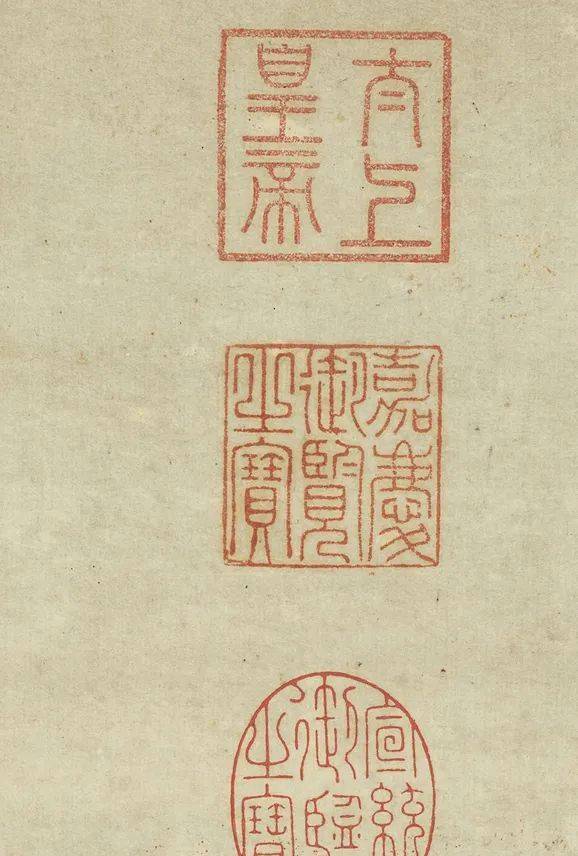 太上
皇帝
嘉慶
御覽
之寶
宣統
御覽
之寶